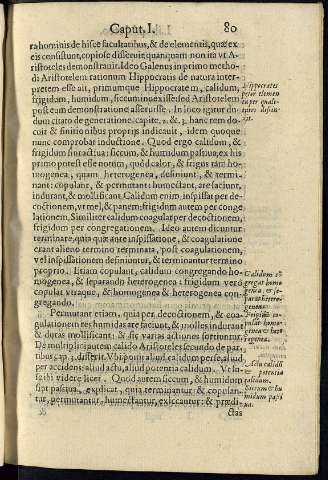 Caput. I.
80
ra hominis de hisce facultatibus, & de elementis, quæ ex
eis consistunt, copiose disseruit, quanquam non ita vt A-
ristoteles demonstrauit. Ideo Galenus in primo metho-
di Aristotelem rationum Hippocratis de natura inter-
pretem esse ait, primumque Hippocratem, calidum,
frigidum, humidum, siccum inuexisse sed Aristotelem
postea cum demonstratione asseruisse. In loco igitur du-
dum citato de generatione, capite, 2. & 3. hanc rem do-
cuit & finitionibus proprijs indicauit, idem quoque
nunc comprobat inductione. Quod ergo calidum, &
frigidum sint actiua: siccum, & humidum passiua, ex his
primo potest esse notum, quòd calor, & frigus tam ho-
mogenea, quam heterogenea, definiunt, & termi-
nant: copulant, & permutant: humectant, are faciunt,
indurant, & mollificant. Calidum enim inspissat per de-
coctionem, vt mel, & panem: frigidum autem per conge-
lationem. Similiter calidum coagulat per decoctionem,
frigidum per congregationem. Ideo autem dicuntur
terminare, quia quæ ante inspissatione, & coagulatione
erant alieno termino terminata, post coagulationem,
vel inspissationem definiuntur, & terminantur termino
proprio. Etiam copulant, calidum congregando ho-
mogenea, & separando heterogenea: frigidum verò
copulat vtraque, & homogenea & heterogenea con-
gregando.
Permutant etiam, quia per decoctionem, & coa-
gulationem res humidas are faciunt, & molles indurant
& duras molliscant: & sic varias actiones sortiuntur.
De multiplici autem calido Aristoteles secundo de par-
tibus cap. 3. disserit. Vbi ponit aliud calidum per se, aliud
per accidens: aliud actu, aliud potentia calidum. Vt il-
lic ibi videre licet. Quod autem siccum, & humidum
sint passiua, explicat, quia terminantur: & copulan-
tur, permutantur, humectantur, exiccantur: & prædi-
ctas
Hippocrates
Calidum cō
gregat homo
genea, & se-
parat hetero-
genea.
Frigidū co-
pulat homo-
genea & hete
rogenea.
Actu calidū
& potentia
calidum.
Siccum & hu
midum passi
ua.